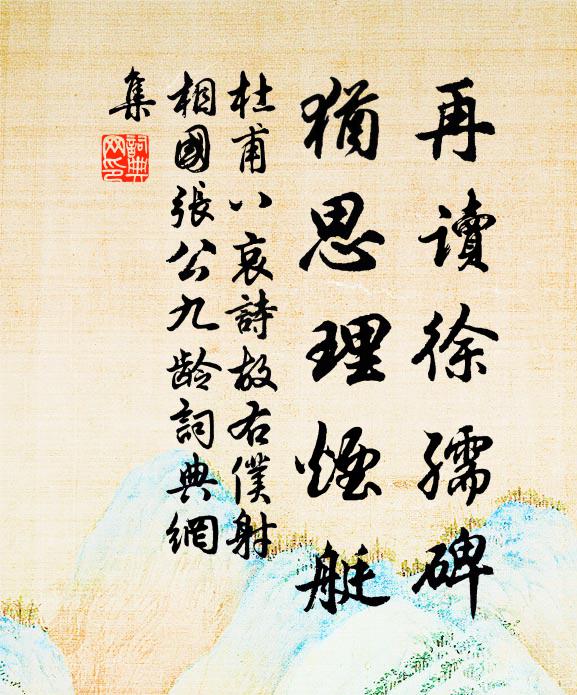 再讀徐孺碑
猶思理煙艇
杜甫八哀詩故右僕射
相國張公九齡詞典網
集
詞典网印